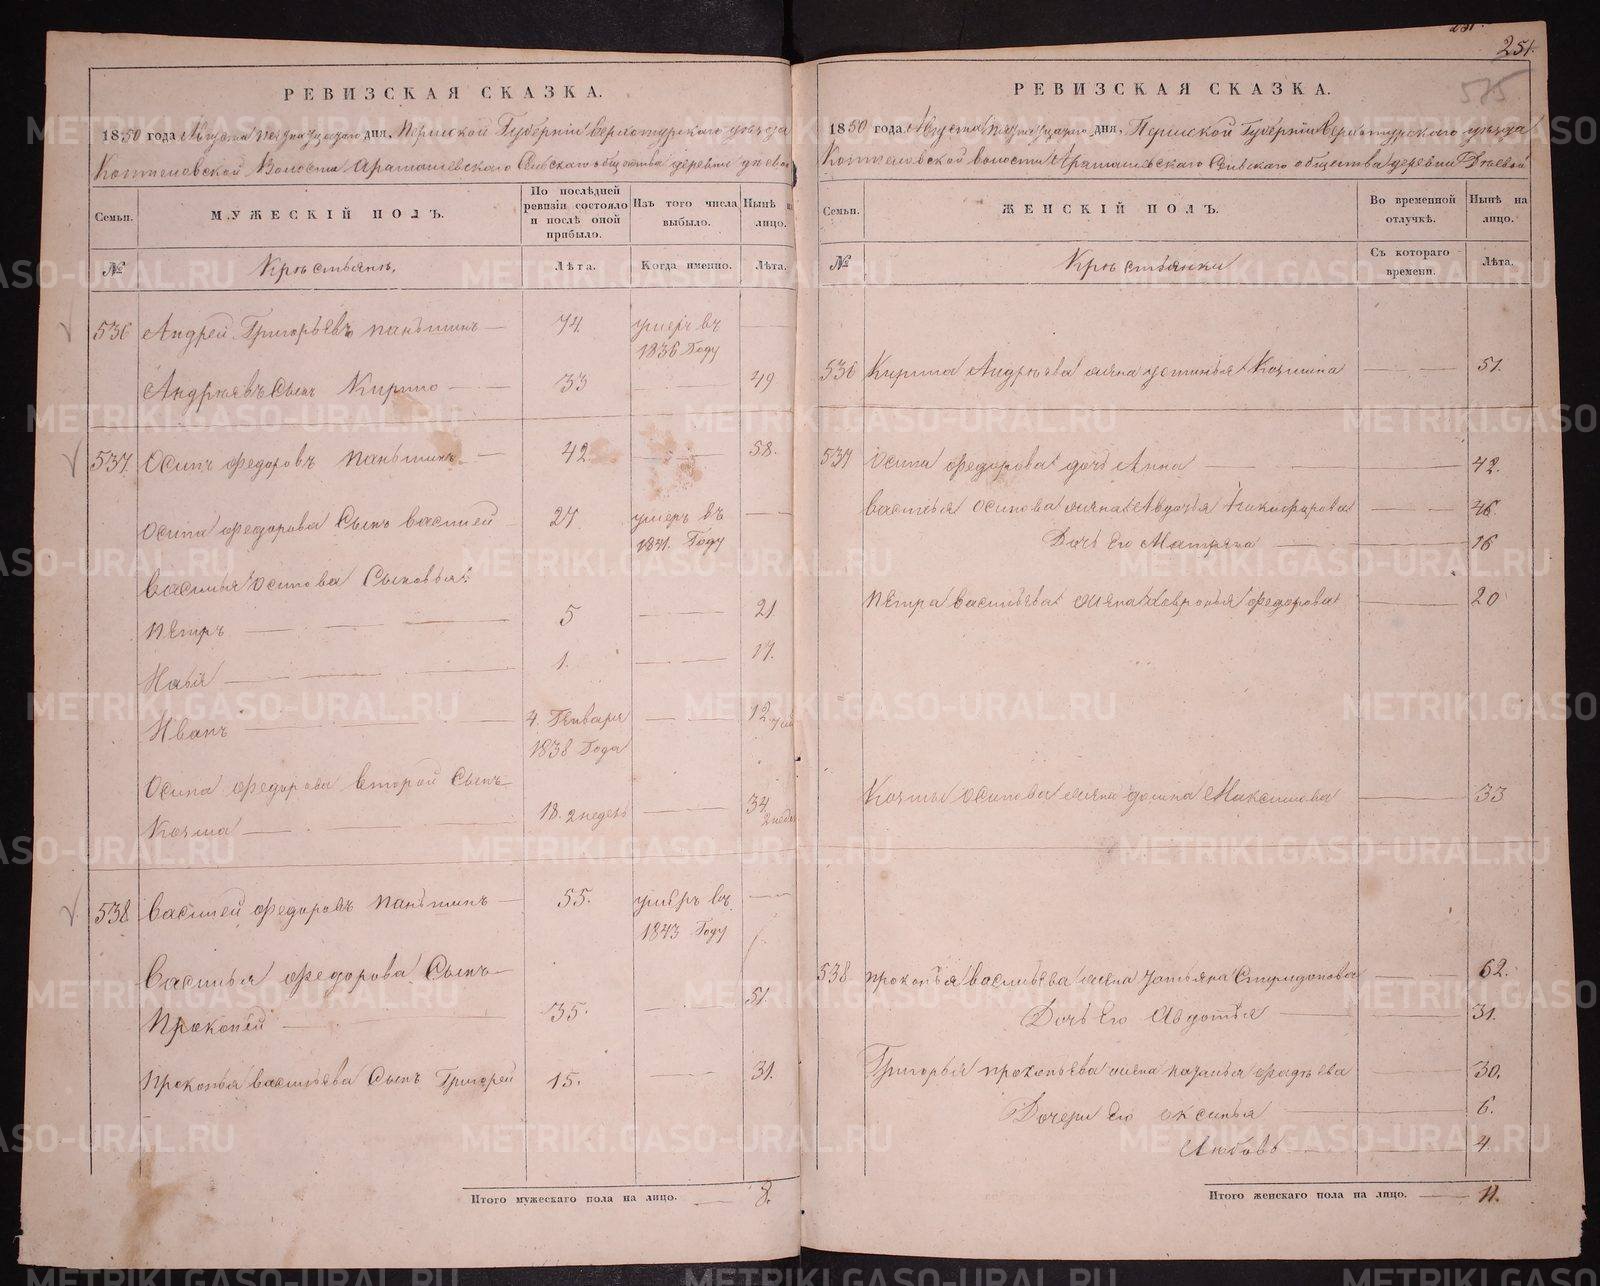 251.
575
РЕВИЗСКАЯ СКАЗКА.
1850 года Августа дня, Пермской Губерніи Верхотурскаго уѣзда
Коптеловской Волости Арамашевскаго Сельскаго общества деревни
Семьи.
МУЖЕСКІЙ ПОЛЪ.
По послѣдней ревизіи состояло и послѣ оной прибыло.
Изъ того числа выбыло.
Нынѣ на лицо.
№
Крестьянъ.
Лѣта.
Когда именно.
Лѣта.
536 Андрей Григорьевъ Паньшинъ — 74 умеръ въ —
1836 Году
Андреевъ Сынъ Кирило — 33 — 49
537. Осипъ Федоровъ Паньшинъ — 42. — 58.
Осипа Федорова Сынъ Василей 27 умеръ въ —
1841. Году
Василья Осипова Сыновья:
Петръ — 5 — 21.
— 1. — 17.
Иванъ — 4. Генваря — 12
1838 Года
Осипа Федорова второй Сынъ —
Козма — 18. 2 недель — 34.
538 Василей Федоровъ Паньшинъ — 55. умеръ въ —
1843 Году
Василья Федорова Сынъ —
Прокопей — 35. — 51.
Прокопья Васильева Сынъ Григорей 15. — 31.
Итого мужескаго пола на лицо. — 8.
РЕВИЗСКАЯ СКАЗКА.
1850 года. Августа дня, Пермской Губерніи Верхотурскаго уѣзда
Коптеловской волости Арамашевскаго Сельскаго общества деревни
Семьи.
ЖЕНСКІЙ ПОЛЪ.
Во временной отлучкѣ.
Нынѣ на лицо.
№
Крестьянки
Съ котораго времени.
Лѣта.
536 Кирила Андреева жена Устинья Козмина — 51.
537 Осипа Федорова дочь Анна — 42.
Василья Осипова жена Авдотья Никифорова — 46.
Дочь Его Матрена — 16
Петра Васильева жена Ховронья Федорова — 20
Козмы Осипова жена Домна Максимова — 33
538 Прокопья Васильева жена Татьяна Спиридонова — 62.
Дочь Его Авдотья — 31.
Григорья Прокопьева жена Фадѣева — 30.
Дочери Его Аксинья — 6.
Любовь — 4.
Итого женскаго пола на лицо. — 11.
METRIKI.GASO-URAL.RU